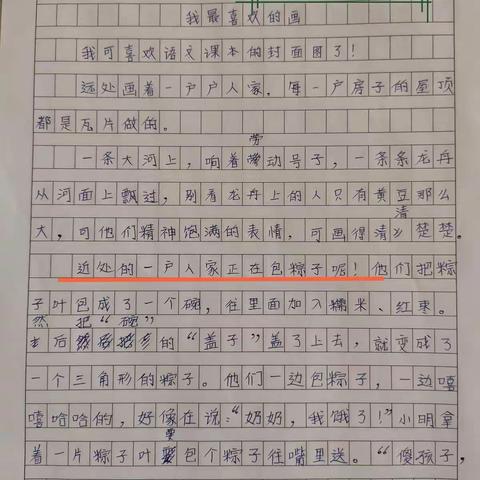 我最喜欢的画
我可喜欢语文课本的封面图了！
远处画着一户户人家，每一户房子的屋顶
都是瓦片做的。
一条大河上，响着劳动号子，一条条龙舟
从河面上飘过，别看龙舟上的人只有黄豆那么
大，可他们精神饱满的表情，可画得清清楚楚。
近处的一户人家正在包粽子呢！他们把粽
子叶包成了一个碗，往里面加入糯米、红枣。
然后把“碗”的“盖子”盖了上去，就变成了
一个三角形的粽子。他们一边包粽子，一边嘻
嘻哈哈的，好像在说：“奶奶，我饿了！”小明拿
着一片粽子叶要包个粽子往嘴里送。“傻孩子，